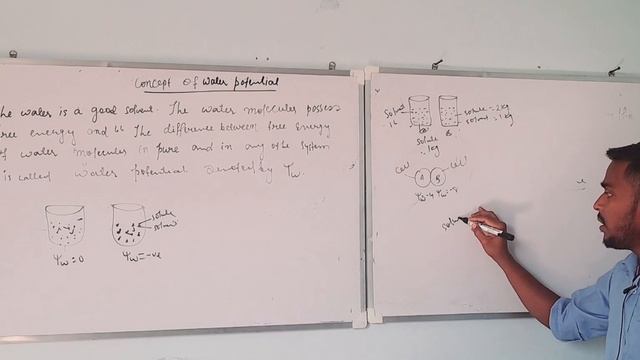 Concept of water potential
The water is a good solvent. The water molecules possess
free energy and The difference between free energy
of water molecules in pure and in any other system
is called water potential denoted by Ψw.
solute
solvent
Ψw = 0
Ψw = -ve
Solvent
1L
A
B
solute = 2kg
solvent = 1kg
solute
= 1kg
Cell
A
B
Cell
Ψw
Ψw
solu